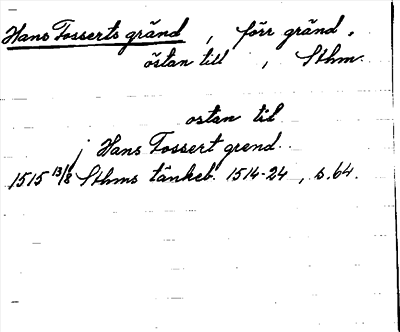 Hans Fosserts gränd, förr gränd,
östan till, Sthm.
ostan til
j Hans Fossert grend.
1515 13/8 Sthms tänkeb. 1514-24, s. 64.